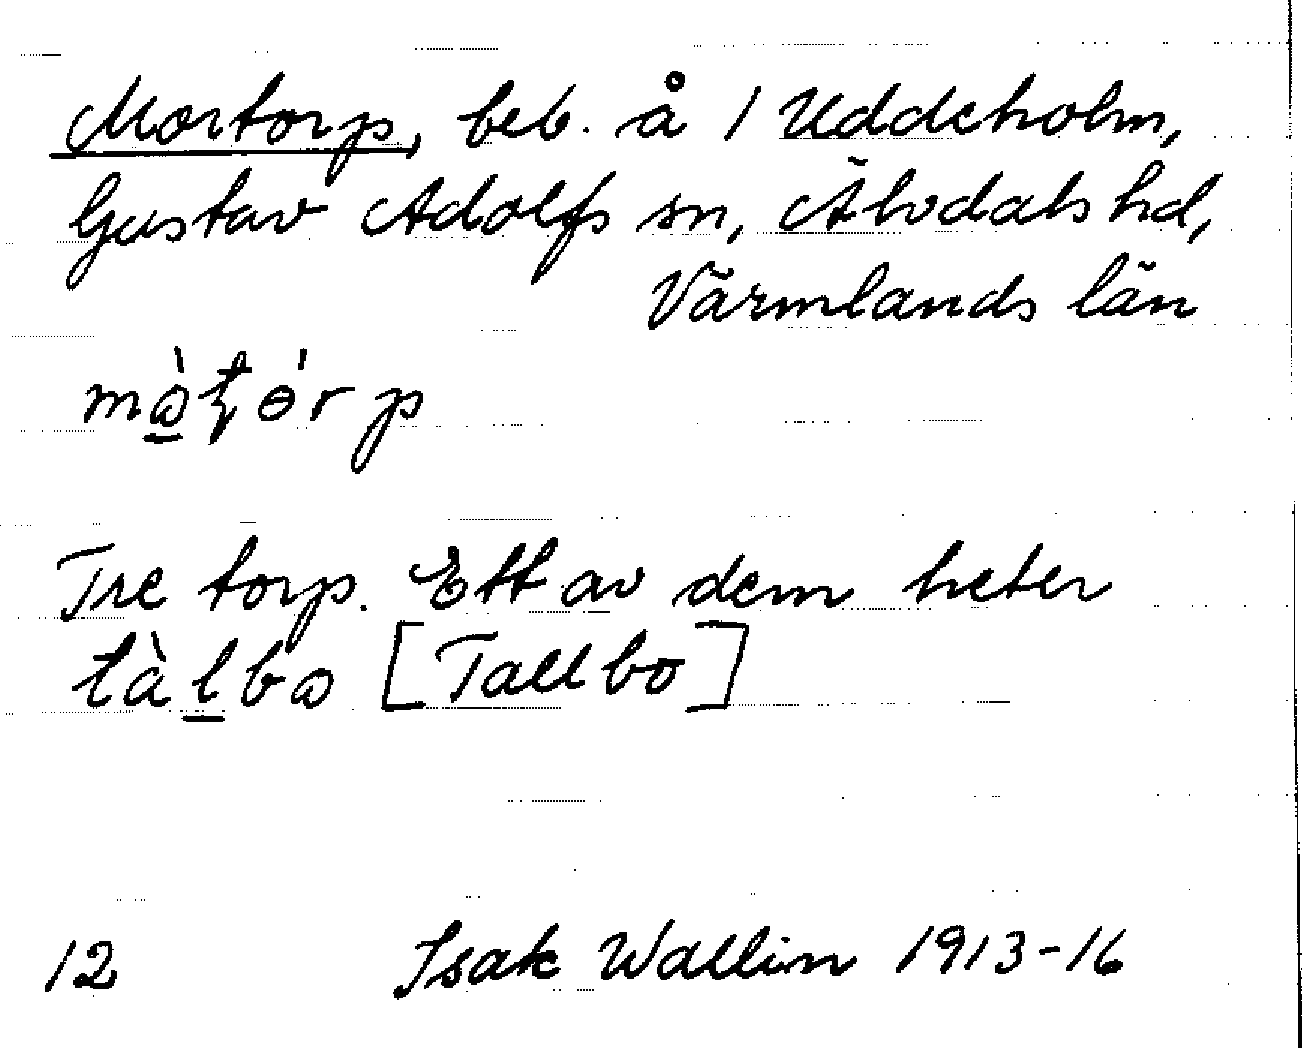 Mortorp, beb. å 1 Uddeholm,
Gustav Adolfs sn, Älvdals hd,
Värmlands län
Tre torp. Ett av dem heter
[Tallbo]
12 Isak Wallin 1913-16